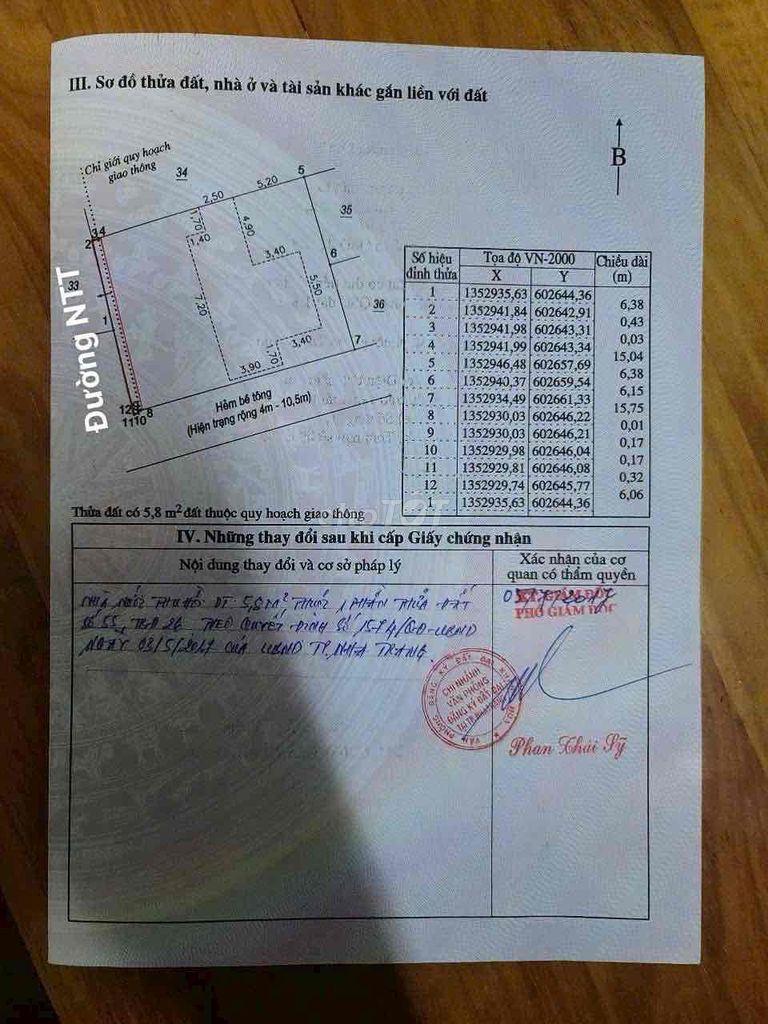 III. Sơ đồ thửa đất, nhà ở và tài sản khác gắn liền với đất
Chỉ giới quy hoạch
giao thông
34
B
5
5,20
2,50
1,70
1,40
4,90
35
34
2
6
3,40
5,50
33
7,20
1
36
3,40
1,70
3,90
7
Đường NTT
12 9 8
11 10
Hẻm bê tông
(Hiện trạng rộng 4m - 10,5m)
Số hiệu đỉnh thửa Tọa độ VN-2000 Chiều dài (m)
X Y
1 1352935,63 602644,36
6,38
2 1352941,84 602642,91
0,43
3 1352941,98 602643,31
0,03
4 1352941,99 602643,34
15,04
5 1352946,48 602657,69
6,38
6 1352940,37 602659,54
6,15
7 1352934,49 602661,33
15,75
8 1352930,03 602646,22
0,01
9 1352930,03 602646,21
0,17
10 1352929,98 602646,04
0,17
11 1352929,81 602646,08
0,32
12 1352929,74 602645,77
6,06
1 1352935,63 602644,36
Thửa đất có 5,8 m² đất thuộc quy hoạch giao thông
IV. Những thay đổi sau khi cấp Giấy chứng nhận
Nội dung thay đổi và cơ sở pháp lý
Xác nhận của cơ
quan có thẩm quyền
NHÀ NƯỚC THU HỒI DT 5,8m² THUỘC 1 PHẦN THỬA ĐẤT
SỐ 55, TBĐ 26 THEO QUYẾT ĐỊNH SỐ 1574/QĐ-UBND
NGÀY 03/5/2017 CỦA UBND TP. NHA TRANG.
KT. GIÁM ĐỐC
PHÓ GIÁM ĐỐC
CHI NHÁNH
VĂN PHÒNG
ĐĂNG KÝ ĐẤT ĐAI
Phan Khải Sỹ